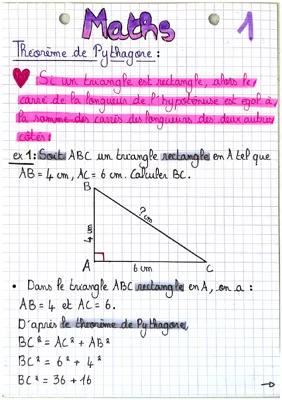 Maths
1
Théorème de Pythagore :
Si un triangle est rectangle, alors le
carré de la longueur de l'hypoténuse est égal à
la somme des carrés des longueurs des deux autres
côtés.
ex 1 : Soit ABC un triangle rectangle en A tel que
AB = 4 cm, AC = 6 cm. Calculer BC.
B
? cm
4 cm
A
6 cm
C
• Dans le triangle ABC rectangle en A, on a :
AB = 4 et AC = 6.
D'après le théorème de Pythagore,
BC² = AC² + AB²
BC² = 6² + 4²
BC² = 36 + 16
→